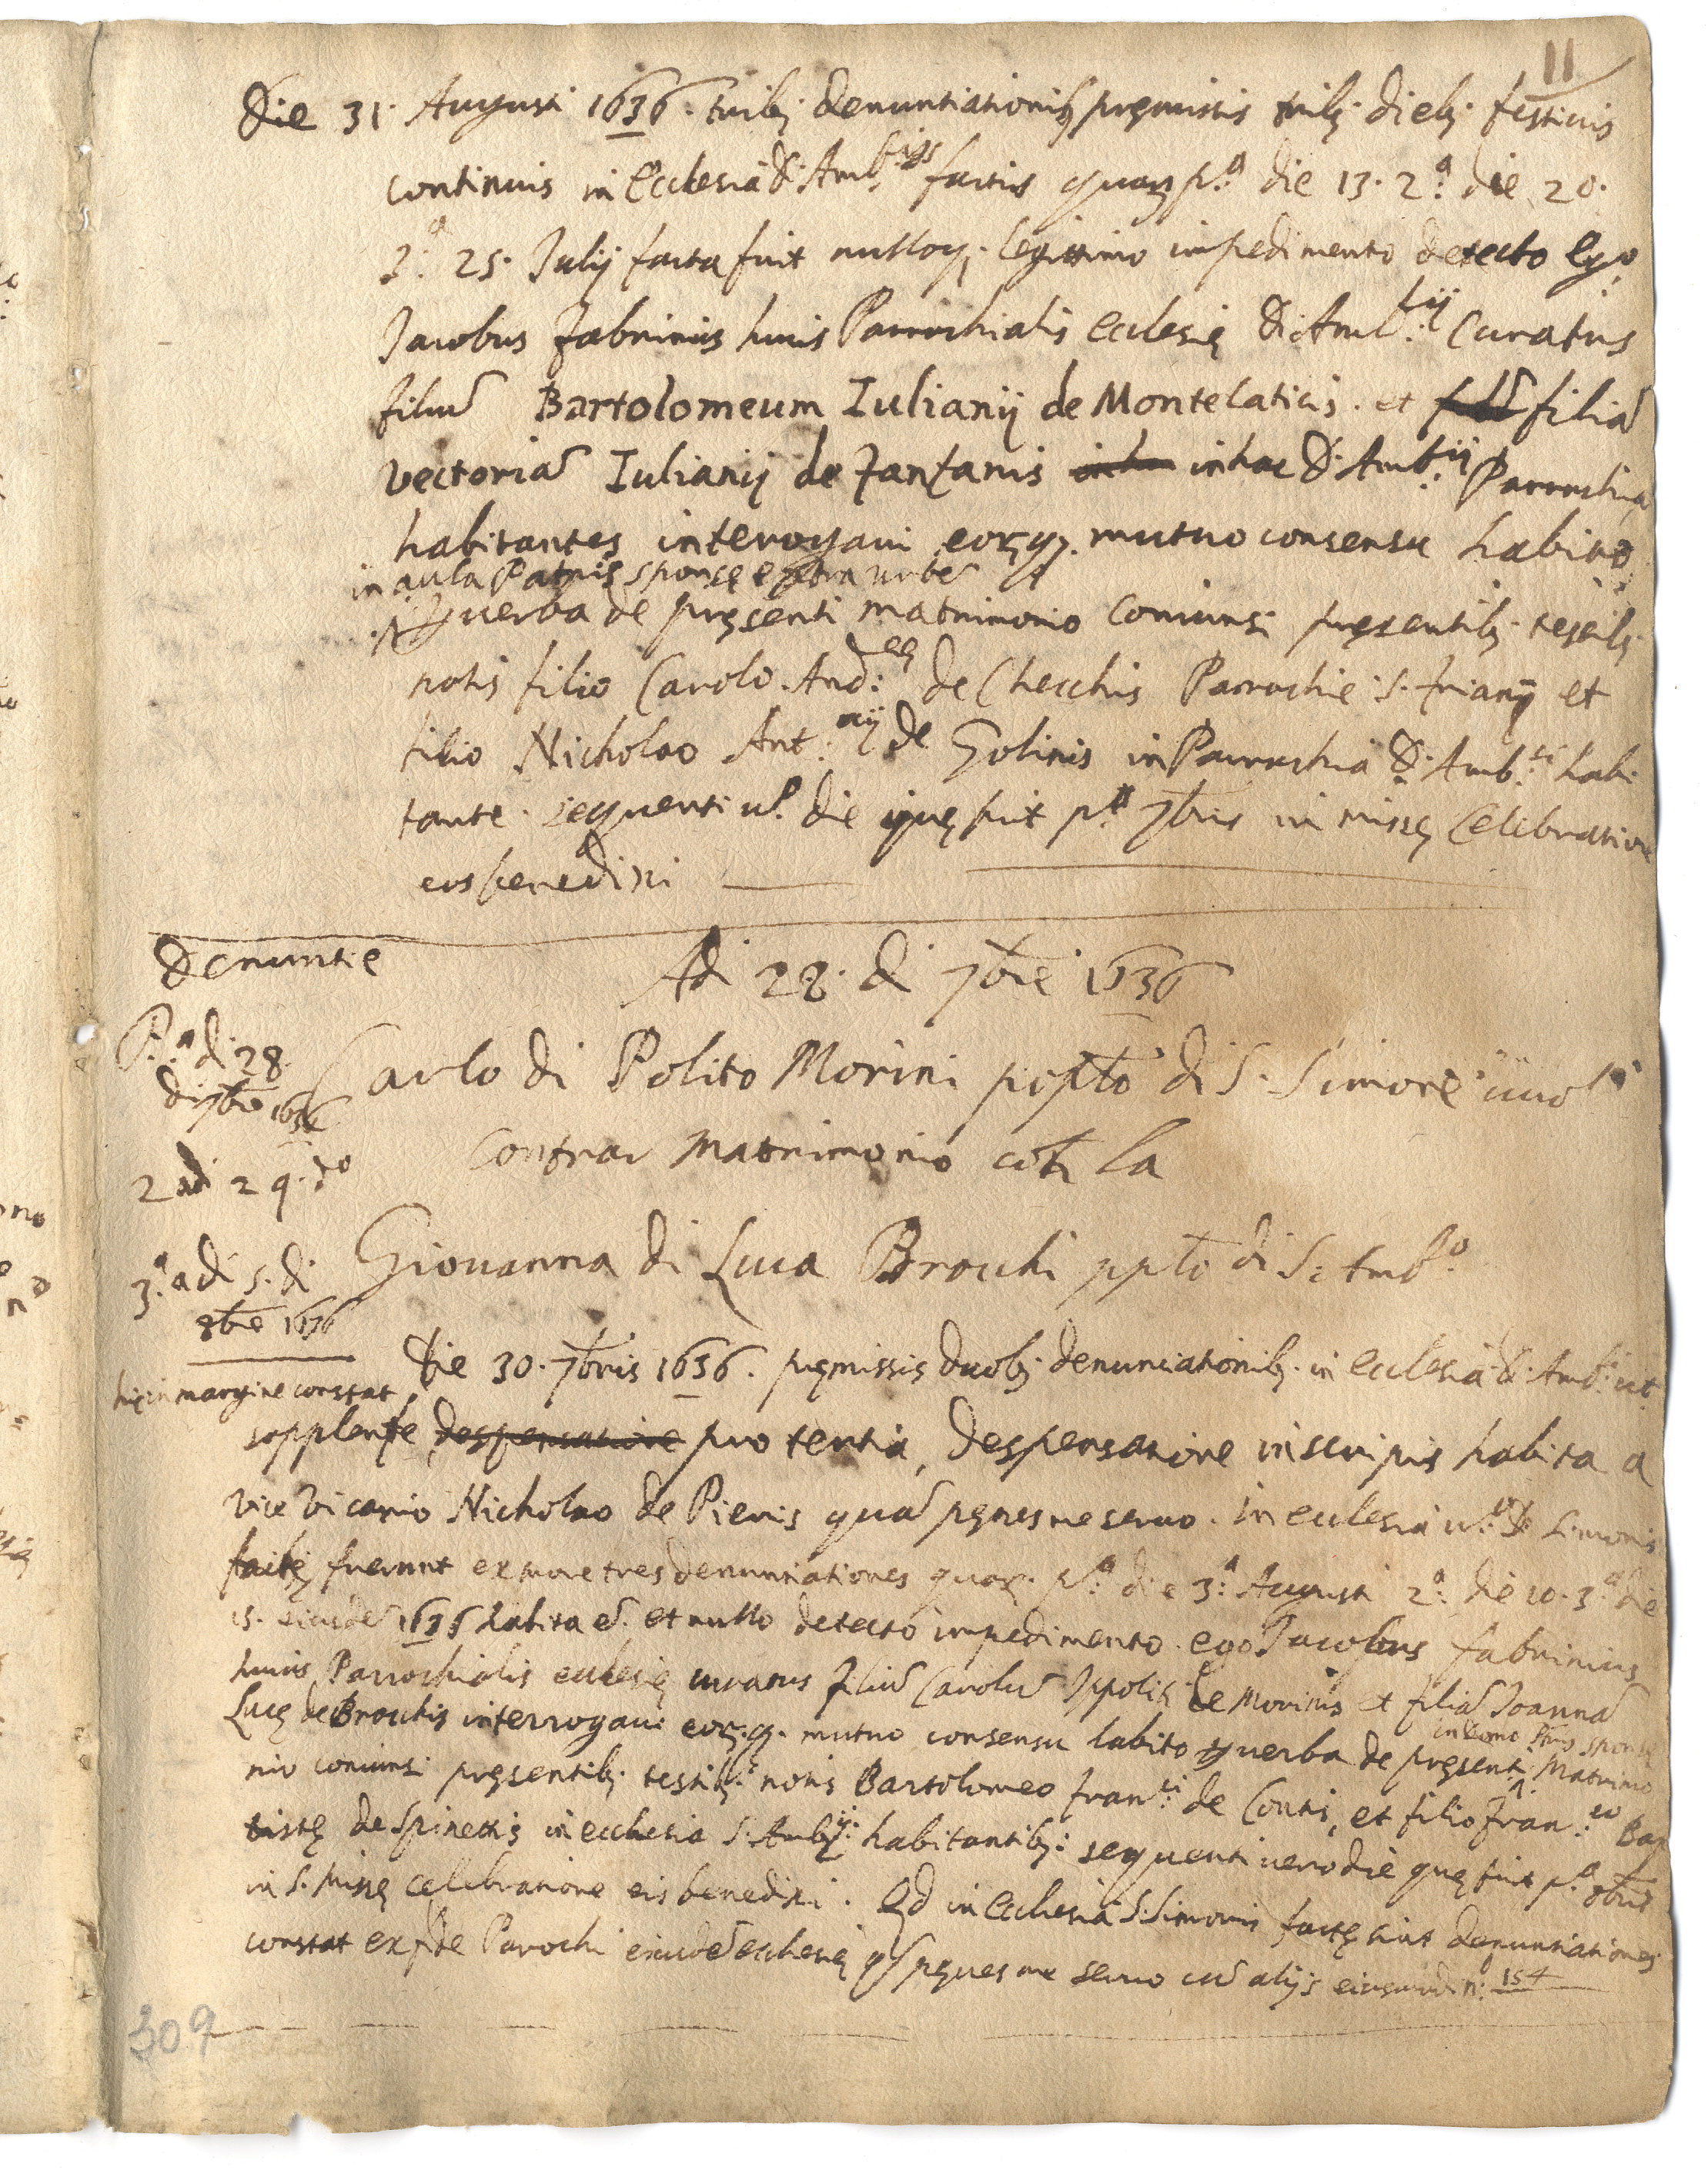 11
Die 31. Augusti 1636. tribꝫ denuntiationibꝫ pręmissis tribꝫ diebꝫ festiuis
continuis in Ecclesia D. Amb.sijs factis quaꝝ p.a die 13. 2.a die 20.
3.a 25. Julij facta fuit nulloqꝫ legittimo impedimento detecto Ego
Jacobus Fabrinius huius Parrochialis Ecclesię D. Amb.sij Curatus
filiū Bartolomeum Iulianij de Montelaticis. et filiā
Vectoriā Iulianij de Zanzanis in hac D. Amb.sij Parrochia
habitantes interogaui eoꝝqꝫ mutuo consensu habito
in aula Patris sponsę extra urbē
ꝑ uerba de pręsenti matrimonio coniunsi pręsentibꝫ testibꝫ
notis filio Carolo And:eę de Checchis Parochie S. Frianij et
filio Nicholao Ant:nij de Golinis in Parrochia D. Amb:si habi
tante. sequenti u.o die quę fuit p.a 7bris in missę Celebratione
eos benedixi
Denuntie
Adi 28. di 7bre 1636
P.a di 28
di 7bre 1636
Carlo di Polito Morini popto di S. Simone uuol
2 adi 29. do
Contrar Matrimonio con la
3.a adi 5. di
8bre 1636
Giouanna di Luca Brochi ppto di S: Amb.o
Die 30. 7bris 1636. pręmissis duobꝫ denunciationibꝫ in Ecclesia D. Amb: ut
hic in margine constat
supplente despensatione pro tertia, despensatione in scriptis habita a
Vice Vicario Nicholao de Pieris quā pęnes me seruo. in ecclesia u.o D. Simonis
factę fuerunt ex more tres denuntiationes quaꝝ. p.a die 3.a Augusti 2.a die 10. 3.a die
15. eiusdē 1636 habita ē. et nullo detecto impedimento. ego Jacobus Fabrinius
huius Parrochialis ecclesię curatus filiū Carolū Ippoliti de Morinis et filiā Joannā
Lucę de Brochis interrogaui eoꝝ.qꝫ. mutuo consensu habito ꝑ uerba de pręsenti Matrimo
in domo Pris sponsę
nio coniunsi pręsentibꝫ testibꝫ notis Bartolomeo Fran:ci de Contis, et filio Fran:co Bap
tistę de Spinettis in ecchesia S. Ambij: habitantibꝫ: sequenti uero die quę fuit p.a 8bris
in S. Missę celebratione eis benedixi. Qd in Ecchesia S. Simonis factę sint denuntiationes
constat ex fide Parochi eiusdē ecchesię pęnes me seruo cū alijs eiusmodi n: 154
309